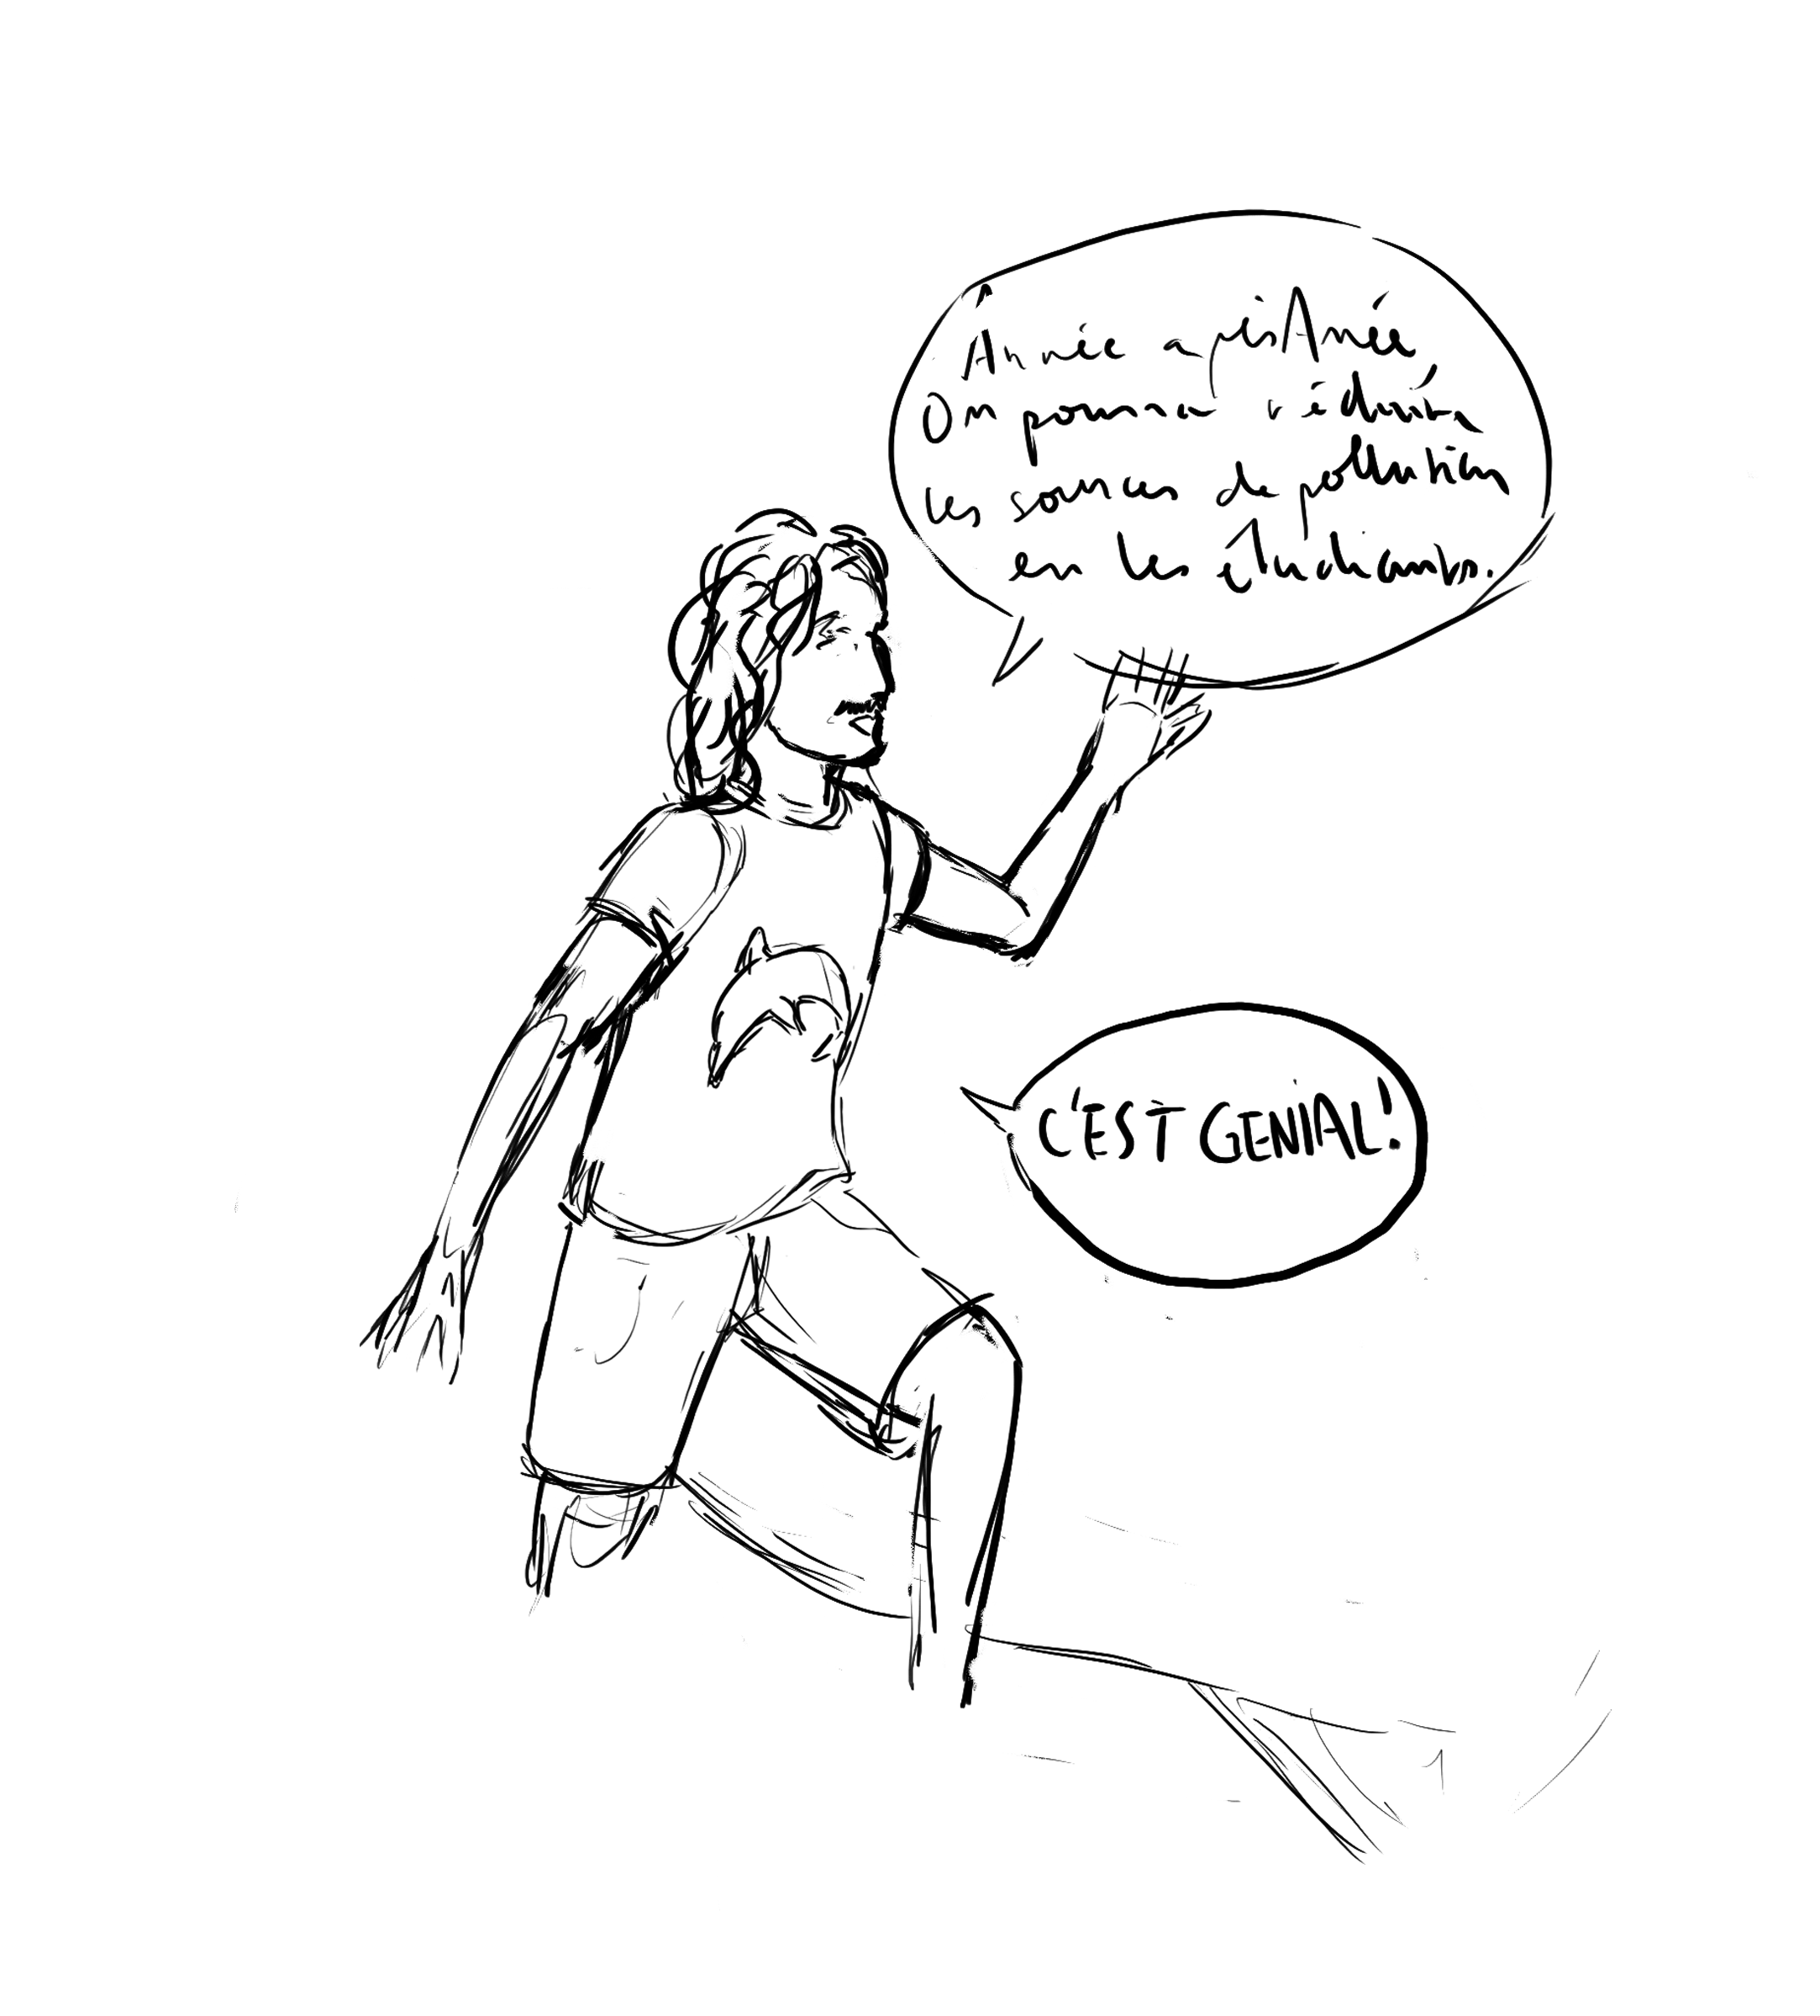 Année après Année
On pourra réduire
les sources de pollution
en les étudiants.
C'EST GENIAL!